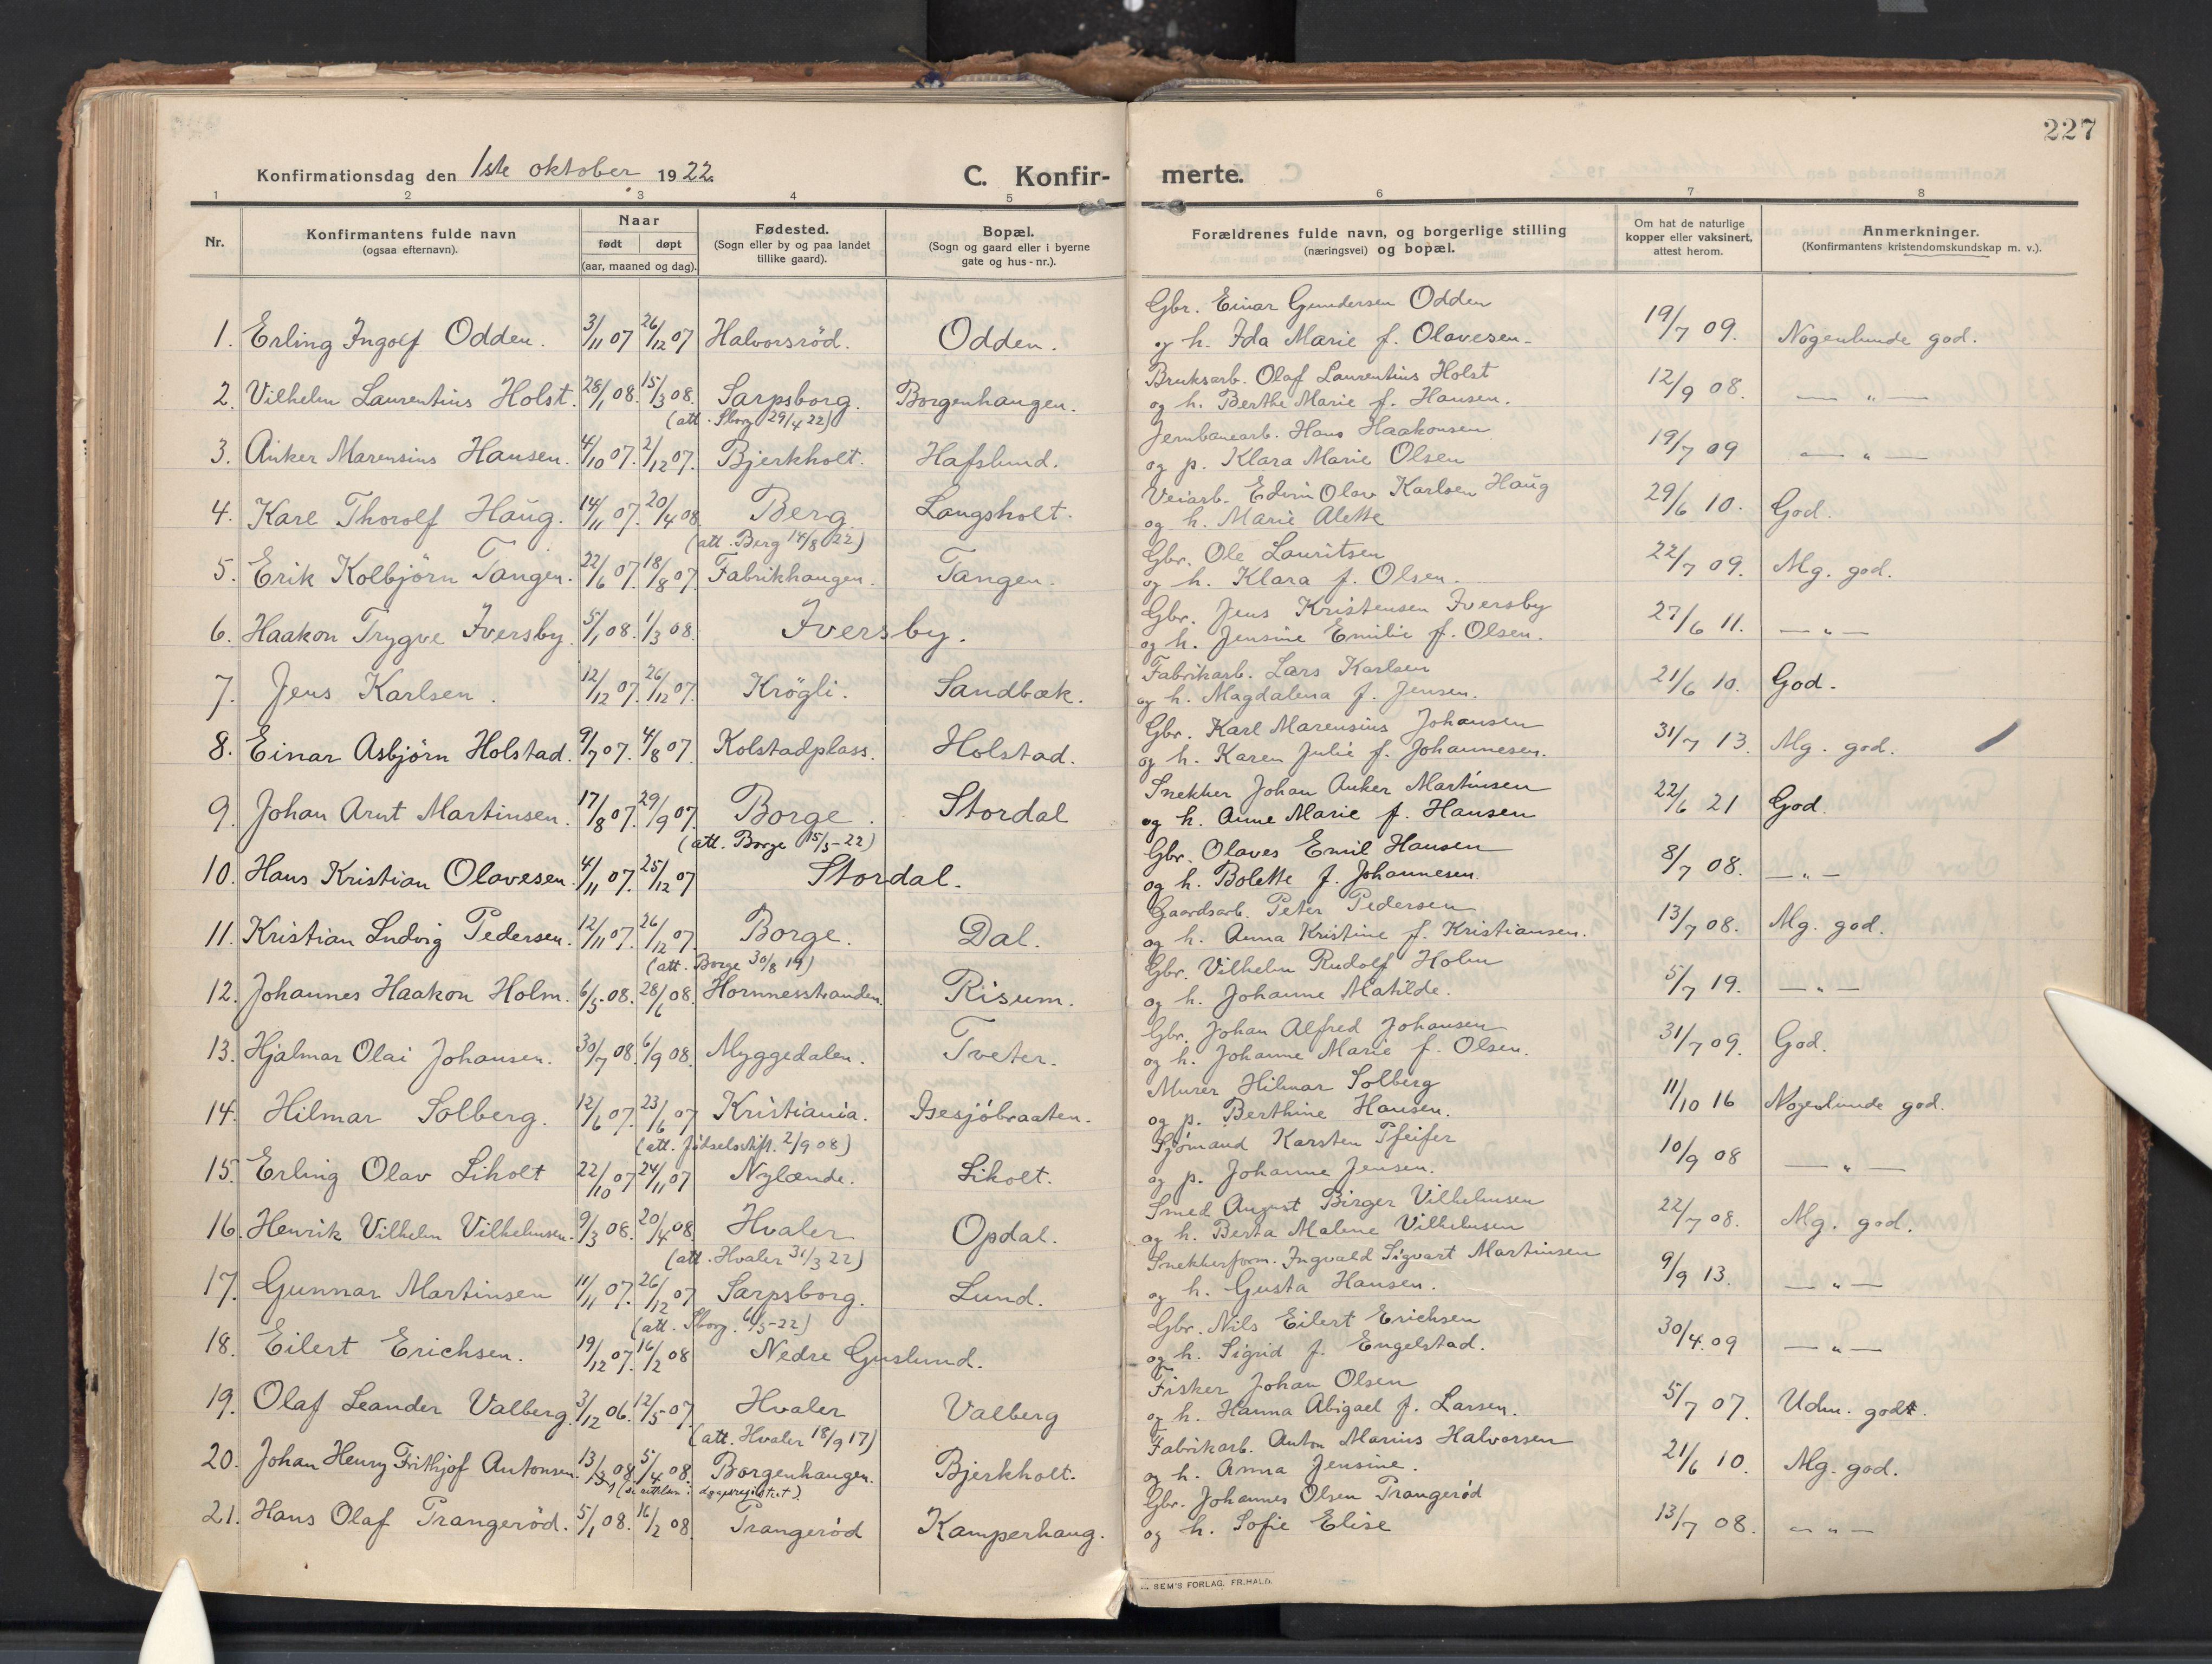 227
Konfirmationsdag den 1ste oktober 1922.
C. Konfir-merte.
1 2 3 4 5 6 7 8
Nr.
Konfirmantens fulde navn
(ogsaa efternavn).
Naar
født døpt
(aar, maaned og dag).
Fødested.
(Sogn eller by og paa landet
tillike gaard).
Bopæl.
(Sogn og gaard eller i byerne
gate og hus-nr.).
Forældrenes fulde navn, og borgerlige stilling
(næringsvei) og bopæl.
Om hat de naturlige
kopper eller vaksinert,
attest herom.
Anmerkninger.
(Konfirmantens kristendomskundskap m. v.).
Gbr. Einar Gundersen Odden
1. Erling Ingolf Odden. 3/11 07 26/12 07 Halvorsröd. Odden. og h. Ida Marie f. Olavesen. 19/7 09. Nogenlunde god.
Bruksarb. Olaf Laurentius Holst
2. Vilhelm Laurentius Holst. 28/1 08. 15/3 08. Sarpsborg. Borgenhaugen. og h. Berthe Marie f. Hansen. 12/9 08. — " —
(att. Sborg 29/4 22)
Jernbanearb. Hans Haakonsen
3. Anker Marensius Hansen. 4/10 07. 2/12 07. Bjerkholt. Hafslund. og p. Klara Marie Olsen 19/7 09 — " —
Veiarb. Edvin Olav Karlsen Haug
4. Kare Thorolf Haug. 14/11 07. 20/4 08. Berg. Langsholt. og h. Marie Alette 29/6 10. God.
(att. Berg 14/8 22)
Gbr. Ole Lauritsen
5. Erik Kolbjörn Tangen. 22/6 07. 18/8 07. Fabrikhaugen. Tangen. og h. Klara f. Olsen. 22/7 09. Mg. god.
Gbr. Jens Kristensen Iversby
6. Haakon Trygve Iversby. 5/1 08. 1/3 08. Iversby. og h. Jensine Emilie f. Olsen. 27/6 11. — " —
Fabrikarb. Lars Karlsen
7. Jens Karlsen. 12/12 07. 26/12 07. Krögli. Sandbæk. og h. Magdalena f. Jensen. 21/6 10. God.
Gbr. Karl Marensius Johansen
8. Einar Asbjørn Holstad. 9/7 07. 4/8 07. Kolstadplass. Holstad. og h. Karen Julie f. Johannesen. 31/7 13. Mg. god.
Snekker Johan Anker Martinsen
9. Johan Arnt Martinsen. 17/8 07. 29/9 07. Borge. Stordal og h. Anne Marie f. Hansen 22/6 21 God.
(att. Borge 15/5-22)
Gbr. Olaves Emil Hansen
10. Hans Kristian Olavesen. 4/11 07. 25/12 07 Stordal. og h. Bolette f. Johannesen. 8/7 08. — " —
Gaardsarb. Peter Pedersen
11. Kristian Ludvig Pedersen. 12/11 07. 26/12 07. Borge. Dal. og h. Anna Kristine f. Kristiansen. 13/7 08. Mg. god.
(att. Borge 30/8 19)
Gbr. Vilhelm Rudolf Holm
12. Johannes Haakon Holm. 6/5-08. 28/6 08. Hornnesstranden. Risum. og h. Johanne Matilde. 5/7 19. — " —
Gbr. Johan Alfred Johansen
13. Hjalmar Olai Johansen. 30/7 08. 6/9 08. Myggedalen. Tveter. og h. Johanne Marie f. Olsen. 31/7 09. God.
Murer Hilmar Solberg
14. Hilmar Solberg. 12/6 07. 23/6 07 Kristiania. Isesjöbraaten. og p. Berthine Hansen. 11/10 16 Nogenlunde god.
(att. Födselsstift. 2/9 08)
Sjømand Karsten Pfeifer
15. Erling Olav Liholt 22/10 07 24/11 07 Nylænde. Liholt. og p. Johanne Jensen. 10/9 08 — " —
Smed August Birger Vilhelmsen
16. Henrik Vilhelm Vilhelmsen. 9/3 08. 20/4 08. Hvaler Opdal. og h. Berta Malene Vilhelmsen 22/7 08. Mg. god.
(att. Hvaler 31/3 22)
Snekkerform. Ingvald Sigvart Martinsen
17. Gunnar Martinsen 11/11 07. 26/12 07 Sarpsborg. Lund. og h. Gusta Hansen. 9/9 13. — " —
(att. Sborg. 6/5-22)
Gbr. Nils Eilert Erichsen
18. Eilert Erichsen. 19/12 07. 16/2 08 Nedre Guslund. og h. Sigrid f. Engelstad. 30/4.09 — " —
Fisker Johan Olsen
19. Olaf Leander Valberg. 3/12 06. 12/5-07. Hvaler Valberg og h. Hanna Abigael f. Larsen. 5/7 07. Udm. godt.
(att. Hvaler 18/9 17)
Fabrikarb. Anton Marius Halvorsen
20. Johan Henry Frithjof Antonsen. 13/3 08. 5/4 08. Borgenhaugen. Bjerkholt. og h. Anna Jensine. 21/6 10. Mg. god.
Gbr. Johannes Olsen Prangerød
21. Hans Olaf Prangerød. 5/1 08. 16/2 08. Prangerød Kamperhaug. og h. Sofie Elise 13/7 08. — " —
SEM'S FORLAG, FR.HALD.